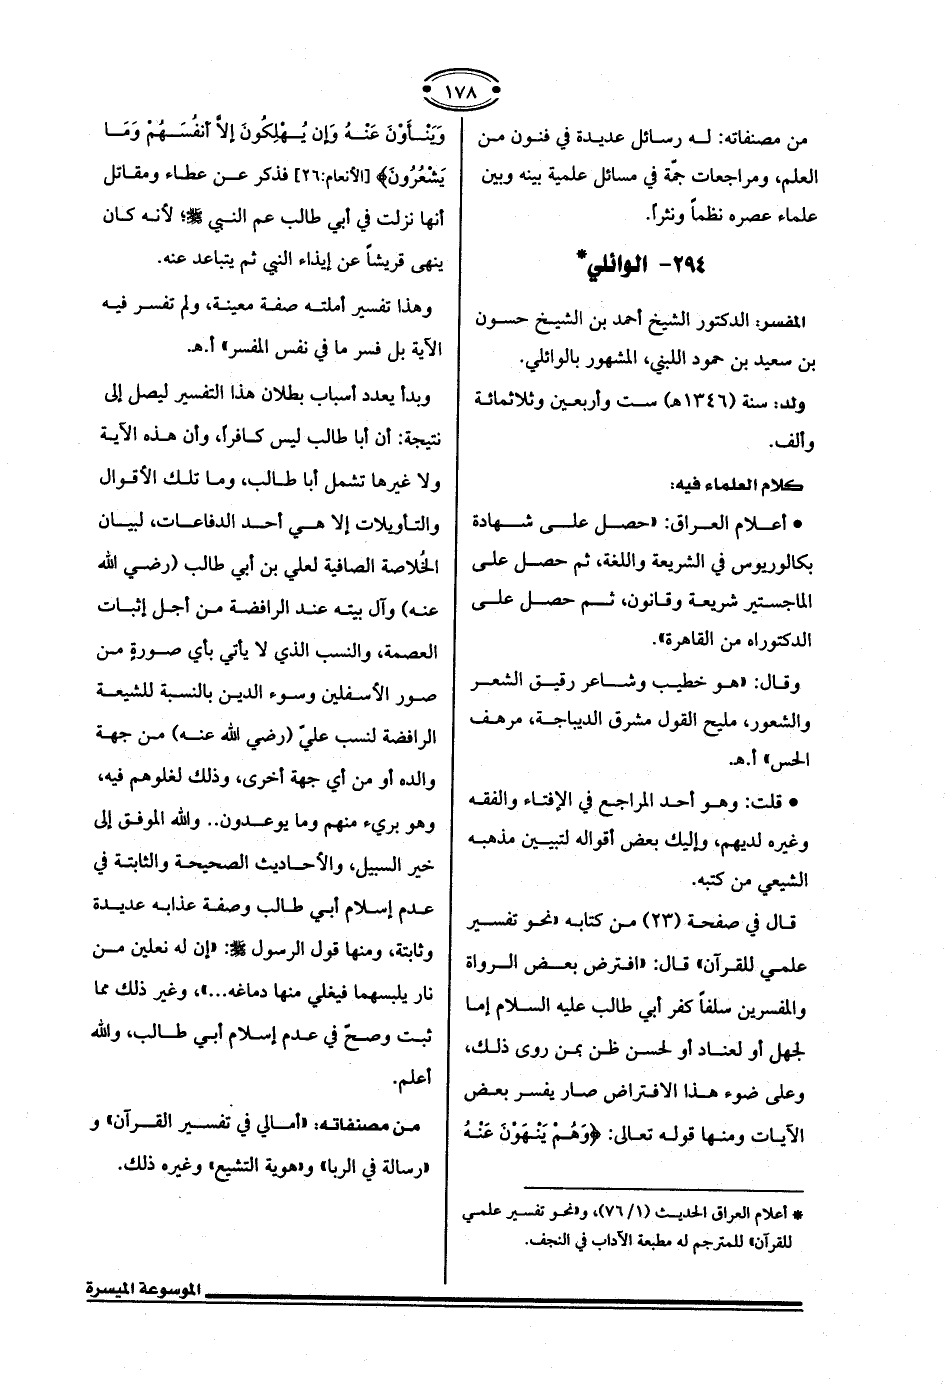 ١٧٨
من مصنفاته: لـه رسـائل عديدة في فنون مـن
العلم، ومراجعات جمّة في مسائل علمية بينه وبين
علماء عصره نظماً ونثراً.
٢٩٤- الوائلي*
المفسر: الدكتور الشيخ أحمد بن الشيخ حسون
بن سعيد بن حمود الليثي، المشهور بالوائلي.
ولد: سنة (١٣٤٦هـ) ست وأربعين وثلاثمائة
وألف.
كلام العلماء فيه:
• أعلام العراق: «حصل على شهادة
بكالوريوس في الشريعة واللغة، ثم حصل على
الماجستير شريعة وقانون، ثـم حصل على
الدكتوراه من القاهرة».
وقال: «هو خطيب وشاعر رقيق الشعر
والشعور، مليح القول مشرق الديباجة، مرهف
الحس» أ.هـ.
• قلت: وهو أحد المراجع في الإفتاء والفقه
وغيره لديهم، وإليك بعض أقواله لتبيين مذهبه
الشيعي من كتبه.
قال في صفحة (٢٣) من كتابه «نحو تفسير
علمي للقرآن» قال: «افترض بعض الرواة
والمفسرين سلفاً كفر أبي طالب عليه السلام إما
لجهل أو لعناد أو لحسن ظن بمن روى ذلك،
وعلى ضوء هذا الافتراض صار يفسر بعض
الآيات ومنها قوله تعالى: ﴿وَهُمْ يَنْهَوْنَ عَنْهُ
* أعلام العراق الحديث (٧٦/١)، و«نحو تفسير علمي
للقرآن» للمترجم له مطبعة الآداب في النجف.
وَيَنْأَوْنَ عَنْهُ وَإِن يُهْلِكُونَ إِلاَّ أَنفُسَهُمْ وَمَا
يَشْعُرُونَ﴾ [الأنعام:٢٦] فذكر عن عطاء ومقاتل
أنها نزلت في أبي طالب عم النبي ﷺ؛ لأنه كان
ينهى قريشاً عن إيذاء النبي ثم يتباعد عنه.
وهذا تفسير أملته صفة معينة، ولم تفسر فيه
الآية بل فسر ما في نفس المفسر» أ.هـ.
وبدأ يعدد أسباب بطلان هذا التفسير ليصل إلى
نتيجة: أن أبا طالب ليس كافراً، وأن هذه الآية
ولا غيرها تشمل أبا طالب، وما تلك الأقوال
والتأويلات إلا هي أحد الدفاعات، لبيان
الخُلاصة الصافية لعلي بن أبي طالب (رضي الله
عنه) وآل بيته عند الرافضة من أجل إثبات
العصمة، والنسب الذي لا يأتي بأي صورةٍ من
صور الأسفلين وسوء الدين بالنسبة للشيعة
الرافضة لنسب عليّ (رضي الله عنه) من جهة
والده أو من أي جهة أخرى، وذلك لغلوهم فيه،
وهو بريء منهم وما يوعدون.. والله الموفق إلى
خير السبيل، والأحاديث الصحيحة والثابتة في
عدم إسلام أبي طالب وصفة عذابه عديدة
وثابتة، ومنها قول الرسول ﷺ: «إن له نعلين من
نار يلبسهما فيغلي منها دماغه...»، وغير ذلك مما
ثبت وصحّ في عدم إسلام أبي طالب، والله
أعلم.
من مصنفاته: «أمالي في تفسير القرآن» و
«رسالة في الربا» و«هوية التشيع» وغيره ذلك.
الموسوعة الميسرة